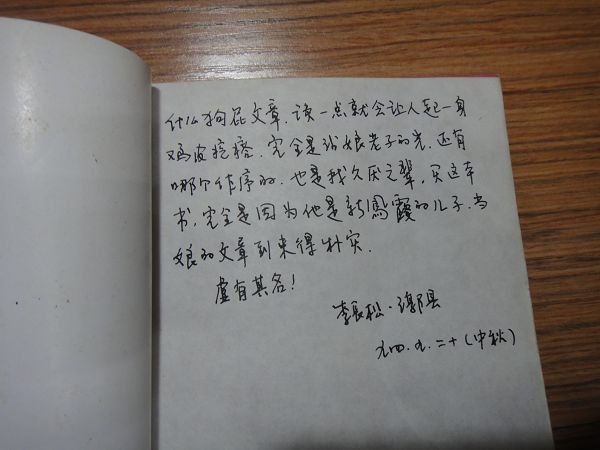 什么狗屁文章，读一点就会让人起一身
鸡皮疙瘩，完全是沾娘老子的光，还有
哪个作序的，也是我久厌之辈，买这本
书，完全是因为他是新鳳霞的儿子，当
娘的文章到来得朴实。
虚有其名！
李长松·鄞县
九四.九.二十（中秋）